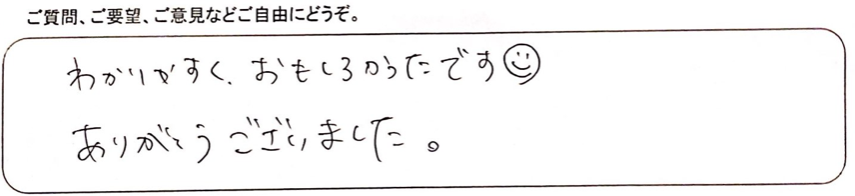 ご質問、ご要望、ご意見などご自由にどうぞ。
わかりやすく、おもしろかったです☺
ありがとうございました。